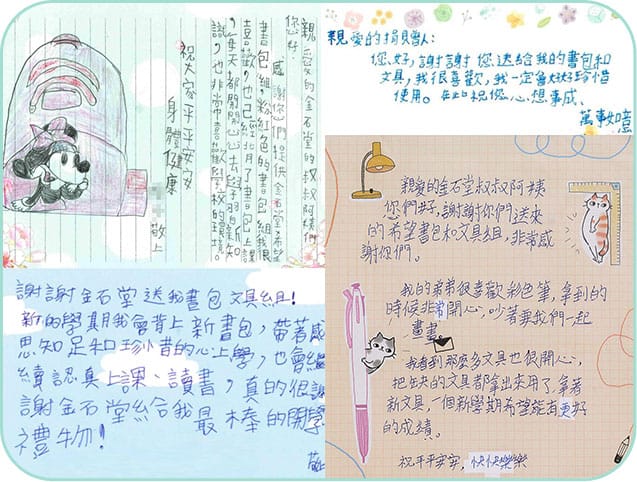 親愛的金石堂的叔叔阿姨們
您好：
感謝你們提供金石堂希望
書包組，粉紅色的書包組我很
喜歡，也已經背了書包上課
，每天都開開心心去學習新知
識，也非常喜歡學校的環境。
祝大家平平安安
身體健康
敬上
親愛的捐贈人：
您好，謝謝您送給我的書包和
文具，我很喜歡，我一定會好好珍惜
使用。在此祝您心想事成、
萬事如意
謝謝金石堂送我書包文具組！
新的學期我會背上新書包，帶著感
恩知足和珍惜的心上學，也會繼
續認真上課、讀書，真的很謝
謝金石堂給我最棒的開學
禮物！
敬
親愛的金石堂叔叔阿姨
您們好，謝謝你們送來
的希望書包和文具組，非常感
謝你們。
我的弟弟很喜歡彩色筆，拿到的
時候非常開心，吵著要我們一起
畫畫
我看到那麼多文具也很開心，
把缺的文具都拿出來用了，拿著
新文具，一個新學期希望能有更好
的成績。
祝平平安安，快快樂樂